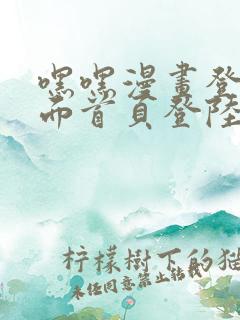 嘿嘿漫畫登
而首頁登陸
柠檬樹下的猫
未经同意禁止转载